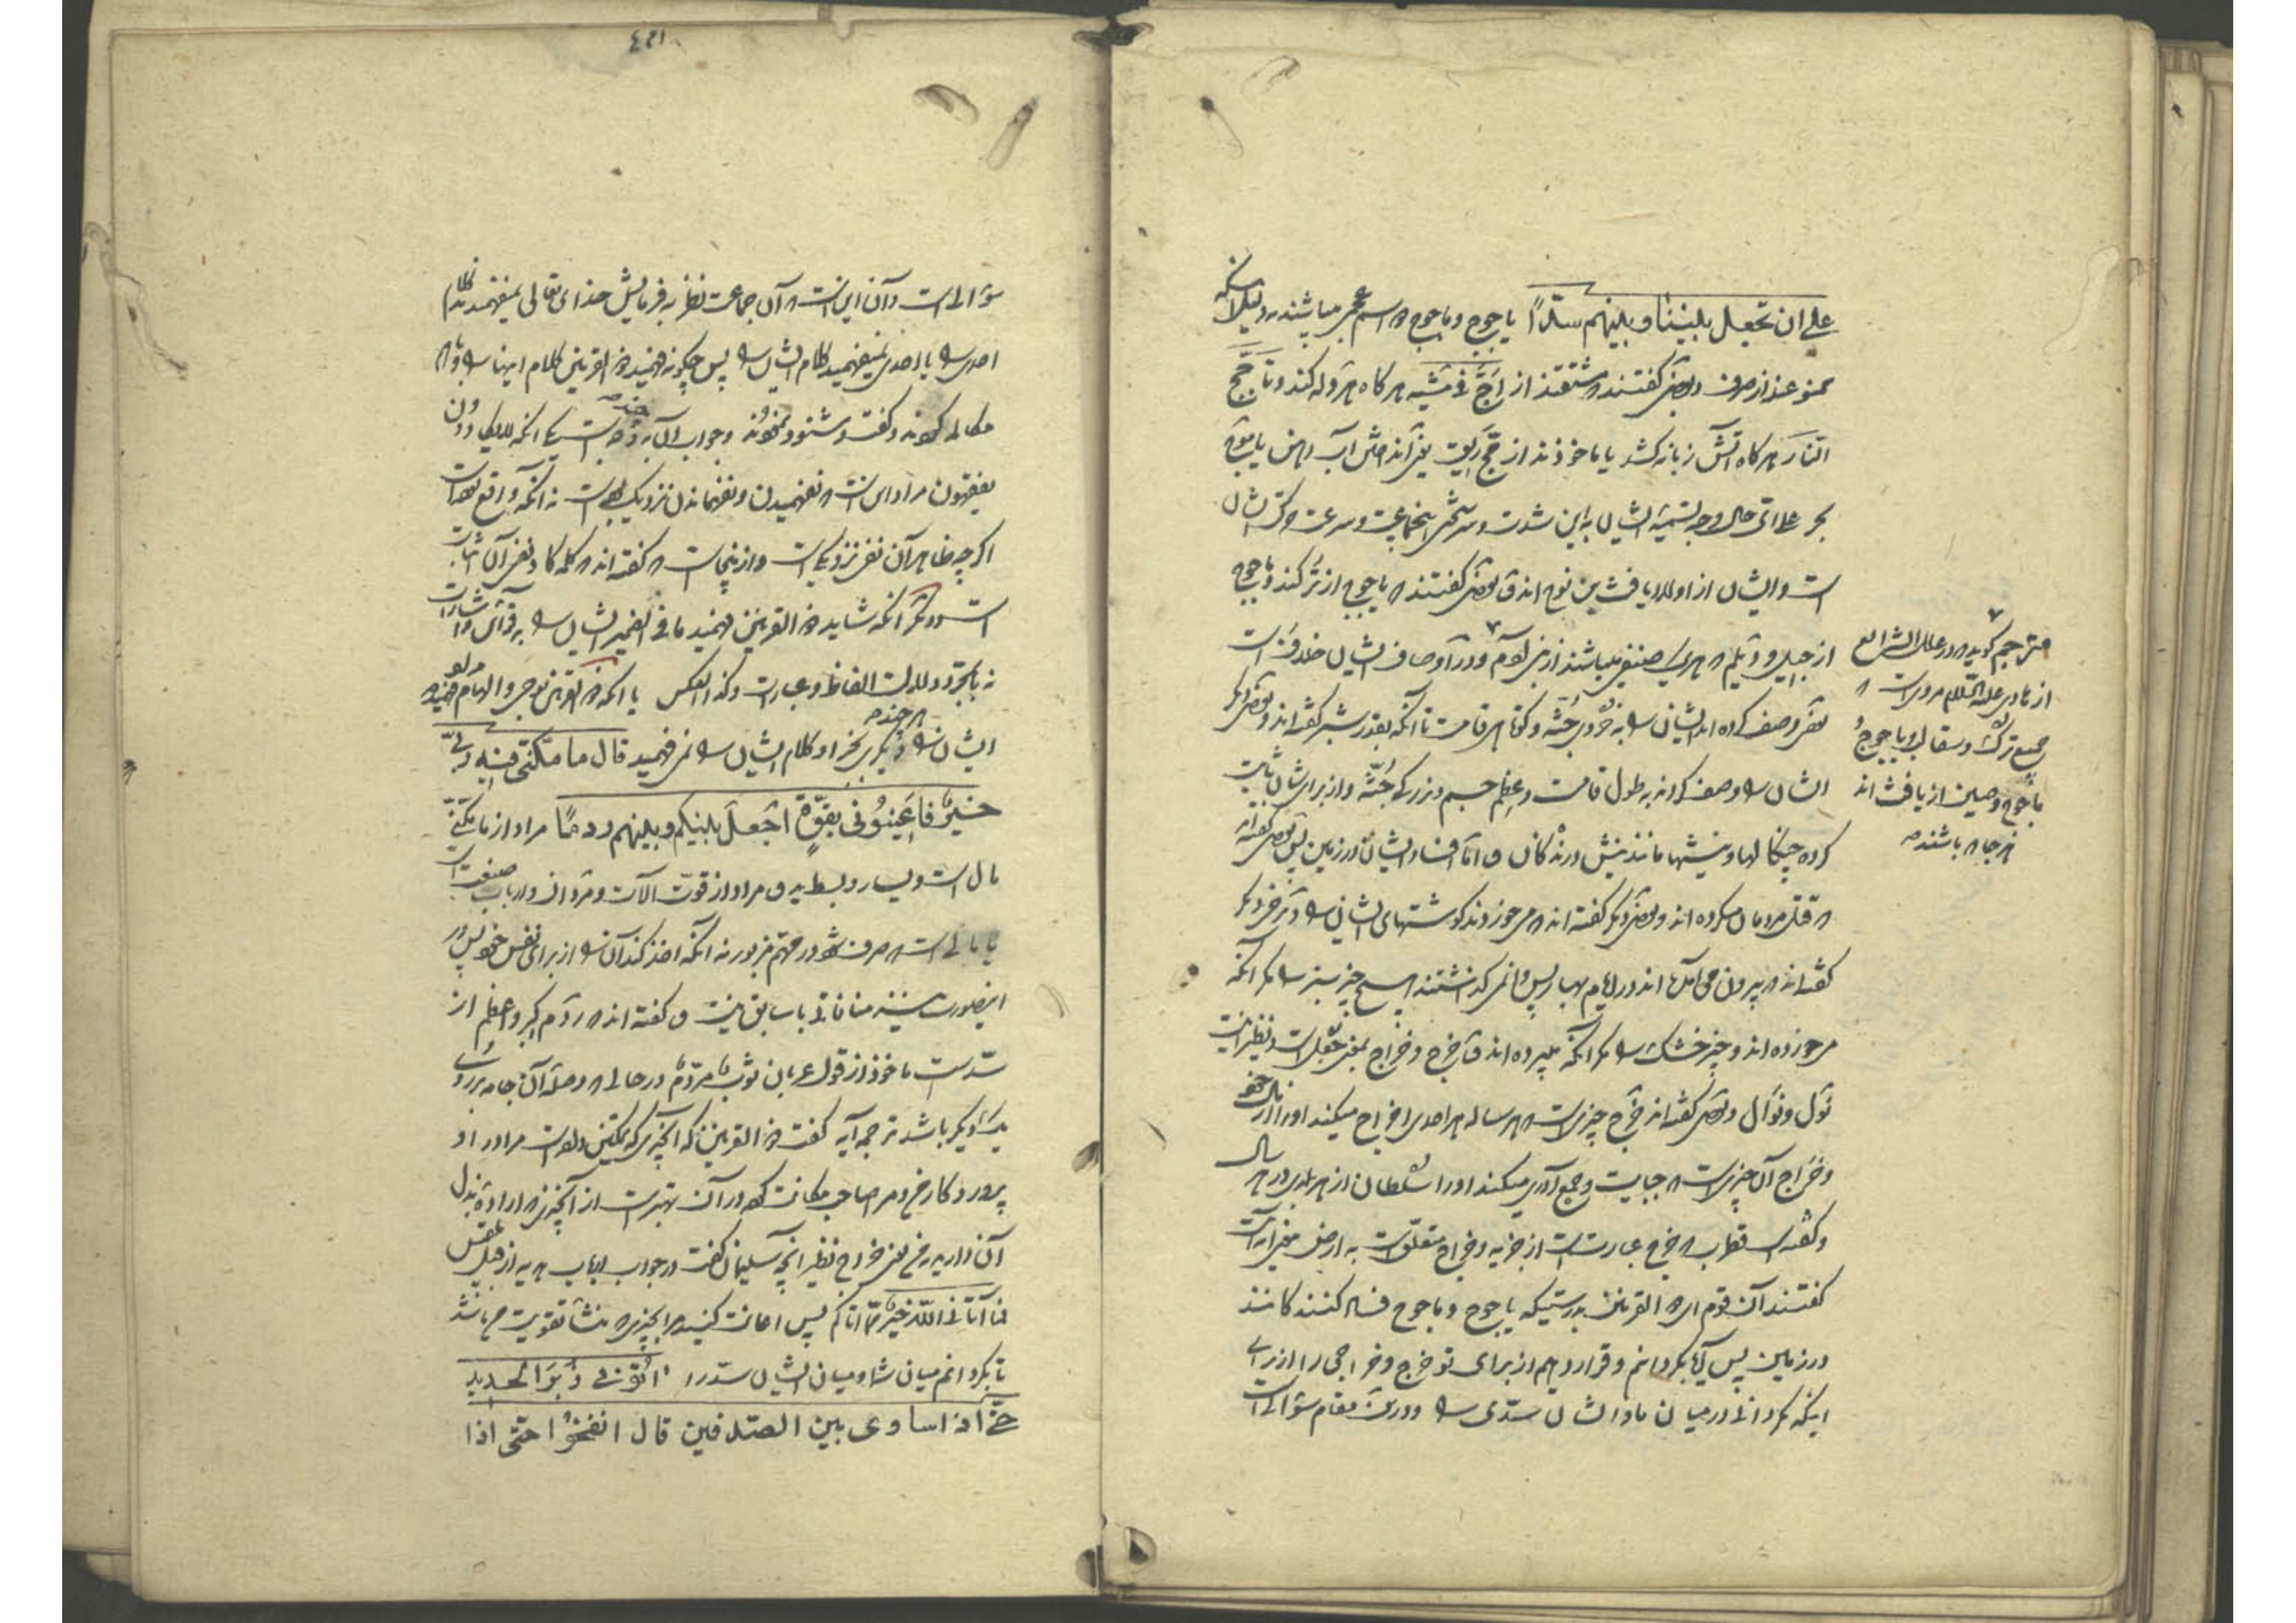 علی ان تجعل بیننا و بینهم سدّاً یاجوج و ماجوج دو اسم عجمی میباشند بدلیل آنکه
ممنوعند از صرف و بعضی گفتند مشتقند از اَجَّ فی مشیه هر کاه هروله کند و تاَجّج
النّار هر کاه آتش زبانه کشد یا ماخوذند از مجّ ریق یعنی انداختن آب دهن یا موج
بحر علی ای حال وجه تسمیه ایشان باین شدت و سرعت حرکت ایشان
است و ایشان از اولاد یافث بن نوح اند و بعضی گفتند که یاجوج از ترکند و ماجوج
از جیل و دیلم
بعضی وصف کرده اند ایشان را به خوردی جثه و کوتاهی قامت تا آنکه بقدر شبر گفته اند و بعضی دیگر
ایشان را وصف کردند به طول قامت و عظم جسم و بزرکی جثّه و از برای ایشان ثابت
کرده چنکالها و نیشها مانند نیش درندکان و امّا افساد ایشان در زمین پس بعضی گفته اند
که قتل مردمان میکرده اند و بعضی دیگر گفته اند که میخوردند کوشتهای ایشان را و بعضی دیگر
گفته اند که بیرون می آمده اند در ایام بهار پس وا نمی کذاشتند هیچ چیز سبز را مکر آنکه
میخورده اند و چیز خشک را مکر آنکه میبرده اند و خرج و خراج بمعنی جعل است و نظیر اینست
نول و نوال و بعضی گفته اند خرج چیزیست که هر ساله هر احدی اخراج میکند او را از مال خود
و خراج آن چیزیست که جبایت و جمع آوری میکند او را سلطان از هر بلدی در هر سال
و گفته است قطرب که خرج عبارتست از جزیه و خراج متعلق است به ارض معنی آیه آنست
گفتند آن قوم ای ذو القرنین بدرستیکه یاجوج و ماجوج فساد کنندکانند
در زمین پس آیا بکردانیم و قرار دهیم از برای تو خرج و خراجی را از برای
اینکه بکردانی در میان ما و ایشان سدّی را و در این مقام سؤالیست
مترجم کوید که در علل الشرایع
از هادی علیه السلام مرویست که
جمیع ترک و سقالبه و یاجوج و
ماجوج و چین از یافث اند
هر جا که باشند
سؤالیست و آن اینست که آن جماعت نظر به فرمایش خدای تعالی نمیفهمیدند کلام
احدی را یا احدی نمیفهمید کلام ایشان را پس چکونه فهمید ذو القرنین کلام اینها را
مکالمه کردند و گفت و شنود نمودند و جواب آن به چند وجه است یکی آنکه لا یکادون
یفقهون مراد اینست که نفهمیدن و نفهماندن نزدیک است نه آنکه واقع شده است
اکر چه ظاهر آن نفی نزدیکی است و از اینجاست که گفته اند که کلمه کاد نفی آن اثبات
است و دیکر آنکه شاید ذو القرنین فهمید ما فی الضمیر ایشان را به قرائن و اشارات
نه بمجرد دلالت الفاظ و عبارت و کذا العکس یا آنکه ذو القرنین بوحی و الهام فهمید مراد
ایشان را هر چند دیگری بجز او کلام ایشان را نمی فهمید قال ما مکّنّی فیه ربّی
خیرٌ فاعینونی بقوّةٍ اجعل بینکم و بینهم ردماً مراد از ما مکّنّی
مال است و یسار و بسط ید و مراد از قوّت آلات و مردان و ارباب صنعت است
یا مالیست که صرف شود در مهمّ مزبور نه آنکه اخذ کند آن را از برای نفس خود پس در
اینصورت منافاتی با سابق نیست و گفته اند که ردم اکبر و اعظم از
سدّ است ماخوذ از قول عربان ثوب مردّم در حالی که وصله آن جامه بر روی
یکدیکر باشد ترجمه آیه گفت ذو القرنین که آنچیزی که تمکین داده است مرا در او
پروردکار من و مرا صاحب مکانت کرده در آن بهتر است از آنچیزی که اراده بذل
آن دارید به من یعنی خراج نظیر آنچه سلیمان گفت در جواب هدیه از بلقیس
فما آتانی اللّه خیر ممّا آتاکم پس اعانت کنید مرا بچیزی که منشأ تقویت من باشد
تا بکردانم میان شما و میان ایشان سد را آتونی زبر الحدید
حتّی اذا ساوی بین الصّدفین قال انفخوا حتّی اذا